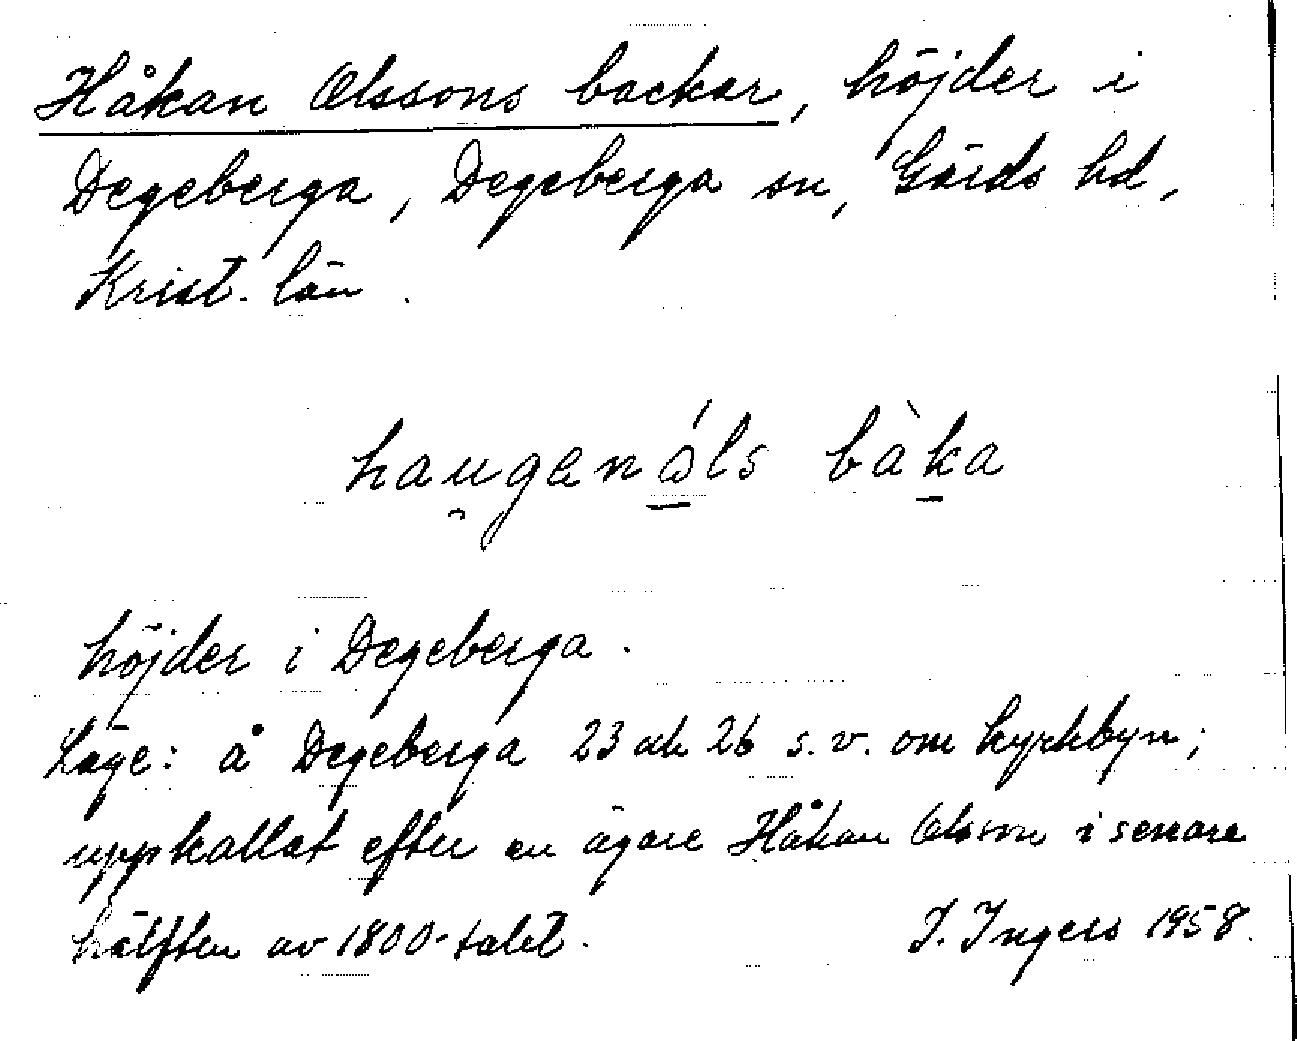 Håkan Olssons backar, höjder i
Degeberga, Degeberga sn, Gärds hd,
Krist. län.
hau̯genǻls bàka
höjder i Degeberga.
Läge: å Degeberga 23 och 26 s.v. om kyrkbyn;
uppkallat efter en ägare Håkan Olsson i senare
hälften av 1800-talet.
I. Ingers 1958.